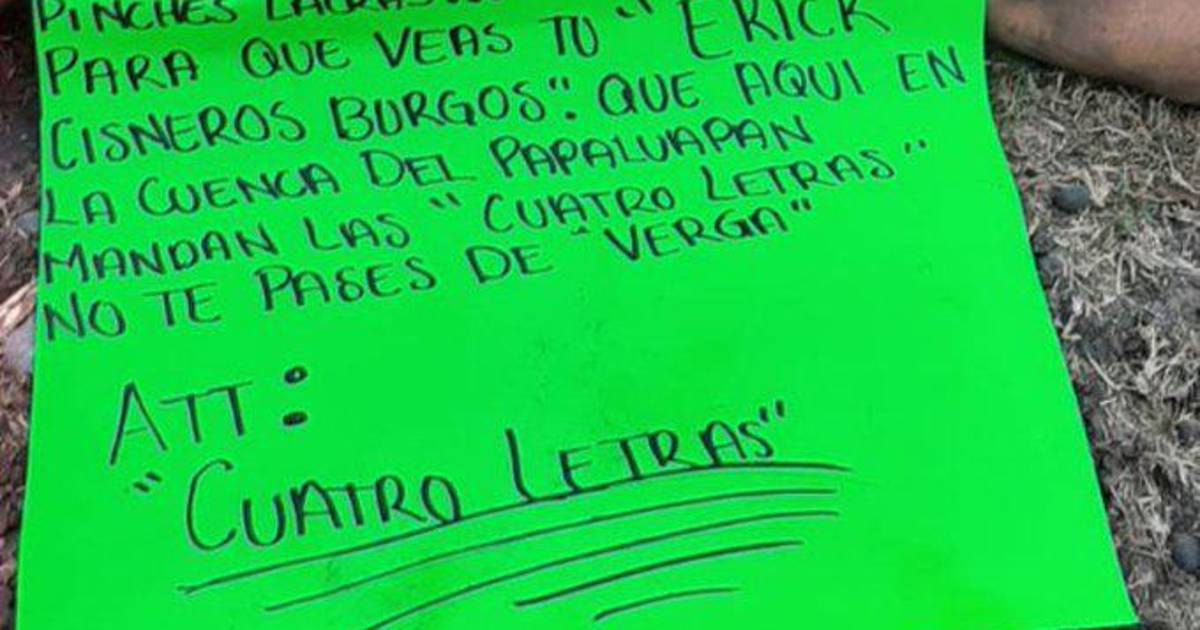 PINCHES LACRAS...
PARA QUE VEAS TU "ERICK
CISNEROS BURGOS". QUE AQUI EN
LA CUENCA DEL PAPALUAPAN
MANDAN LAS "CUATRO LETRAS"
NO TE PASES DE "VERGA"
ATT:
"CUATRO LETRAS"